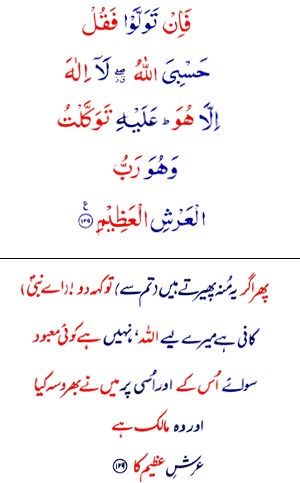 فَاِنْ تَوَلَّوْا فَقُلْ
حَسْبِیَ اللّٰهُ ۖۗ لَاۤ اِلٰهَ
اِلَّا هُوَ ؕ عَلَیْهِ تَوَكَّلْتُ
وَهُوَ رَبُّ
الْعَرْشِ الْعَظِیْمِ ﴿۱۲۹﴾ ع
پھر اگر یہ مُنہ پھیرتے ہیں (تم سے) تو کہہ دو! (اے نبیؐ)
کافی ہے میرے لیے اللہ، نہیں ہے کوئی معبود
سوائے اُس کے اور اُسی پر میں نے بھروسہ کیا
اور وہ مالک ہے
عرشِ عظیم کا ﴿۱۲۹﴾